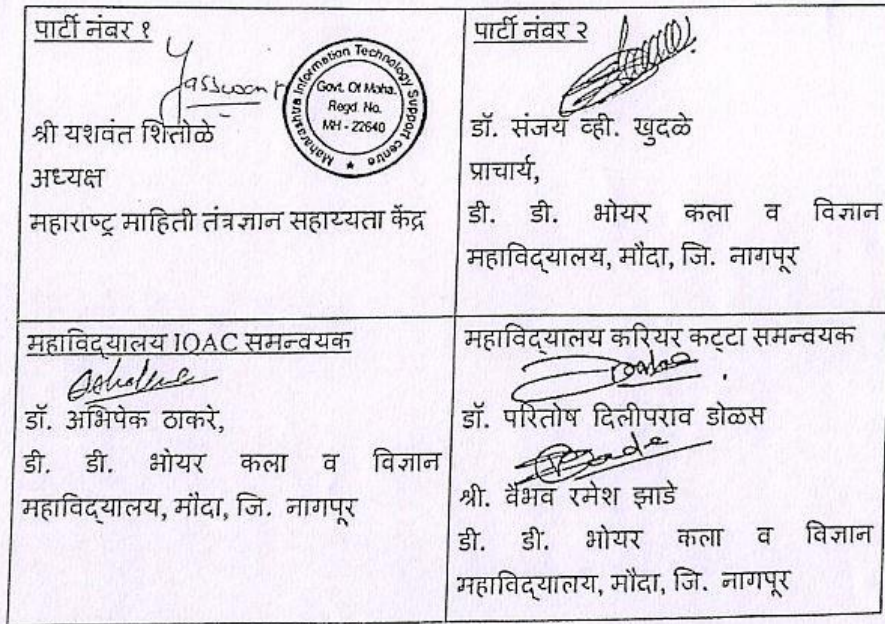 पार्टी नंबर १
Yasswant
Maharashtra Information Technology Support centre
Govt. Of Maha.
Regd. No.
MH - 22640
श्री यशवंत शितोळे
अध्यक्ष
महाराष्ट्र माहिती तंत्रज्ञान सहाय्यता केंद्र
पार्टी नंबर २
डॉ. संजय व्ही. खुदळे
प्राचार्य,
डी. डी. भोयर कला व विज्ञान
महाविद्यालय, मौदा, जि. नागपूर
महाविद्यालय IQAC समन्वयक
डॉ. अभिषेक ठाकरे,
डी. डी. भोयर कला व विज्ञान
महाविद्यालय, मौदा, जि. नागपूर
महाविद्यालय करियर कट्टा समन्वयक
डॉ. परितोष दिलीपराव डोळस
श्री. वैभव रमेश झाडे
डी. डी. भोयर कला व विज्ञान
महाविद्यालय, मौदा, जि. नागपूर